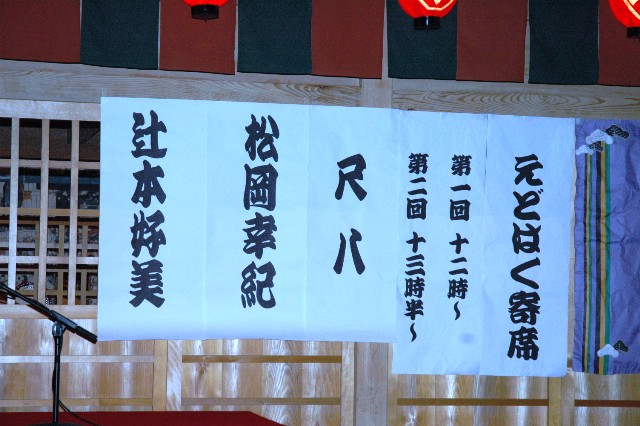 元どはく寄席
第一回 十二時~
第二回 十三時半~
尺八
松岡幸紀
辻本好美